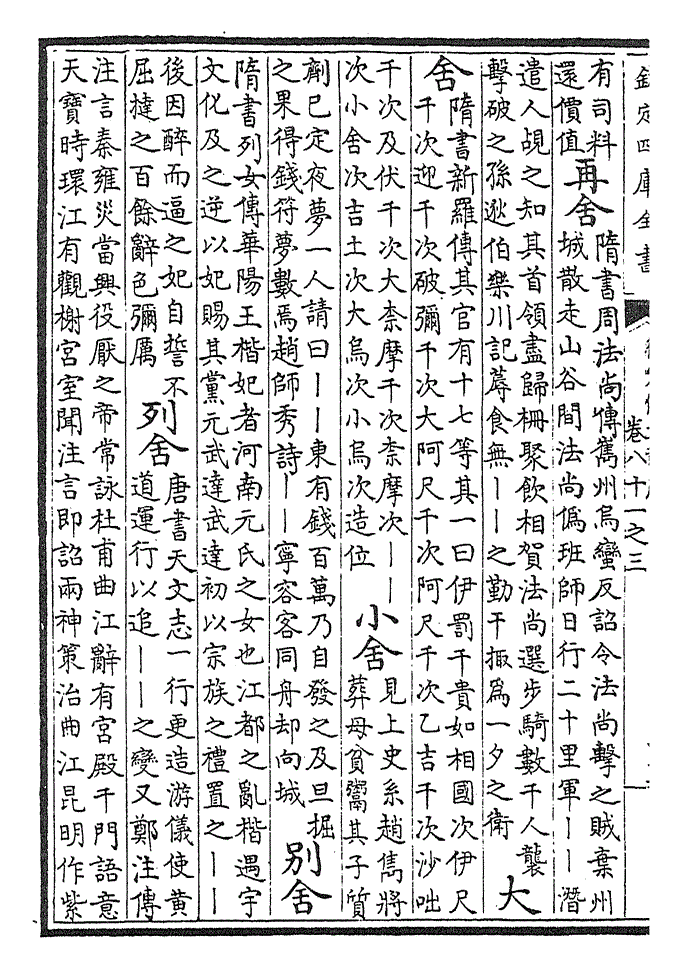 欽定四庫全書
卷八十一之三
有司料
還價值
再舍
隋書周法尚傳雟州烏蠻反詔令法尚擊之賊棄州
城散走山谷間法尚僞班師日行二十里軍丨丨潛
遣人覘之知其首領盡歸柵聚飲相賀法尚選步騎數千人襲
擊破之孫逖伯樂川記蓐食無丨丨之勤干掫爲一夕之衛
大
舍
隋書新羅傳其官有十七等其一曰伊罰干貴如相國次伊尺
干次迎干次破彌干次大阿尺干次阿尺干次乙吉干次沙咄
干次及伏干次大柰摩干次柰摩次丨丨
次小舍次吉土次大烏次小烏次造位
小舍
見上史系趙雋將
葬母貧鬻其子質
劑已定夜夢一人請曰丨丨東有錢百萬乃自發之及旦掘
之果得錢符夢數焉趙師秀詩丨丨寧容客同舟却向城
别舍
隋書列女傳華陽王楷妃者河南元氏之女也江都之亂楷遇宇
文化及之逆以妃賜其黨元武達武達初以宗族之禮置之丨丨
後因醉而逼之妃自誓不
屈撻之百餘辭色彌厲
列舍
唐書天文志一行更造游儀使黃
道運行以追丨丨之變又鄭注傳
注言秦雍災當興役厭之帝常詠杜甫曲江辭有宮殿千門語意
天寶時環江有觀榭宮室聞注言即詔兩神策治曲江昆明作紫